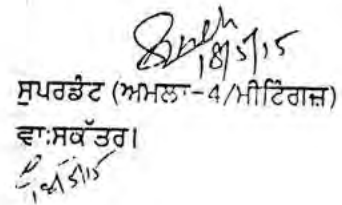 18/5/15
ਸੁਪਰਡੰਟ (ਅਮਲਾ-4/ਮੀਟਿੰਗਜ਼)
ਵਾ:ਸਕੱਤਰ।